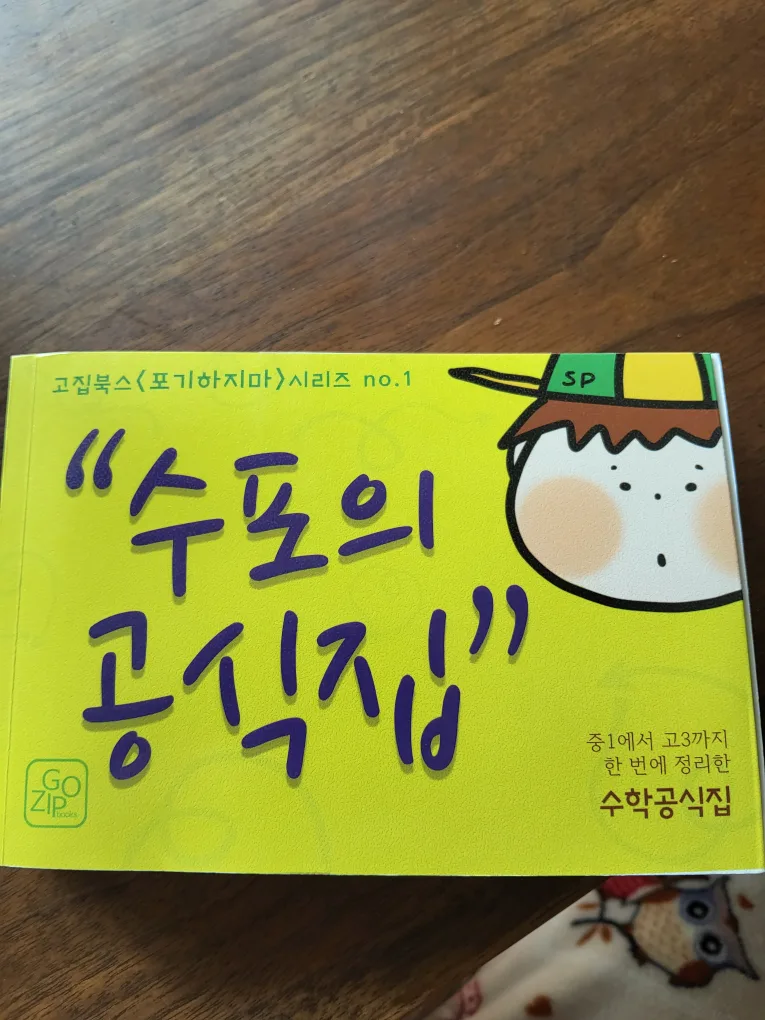 고집북스<포기하지마>시리즈 no.1
SP
"수포의
공식집"
중1에서 고3까지
한 번에 정리한
수학공식집
GO
ZIP
books